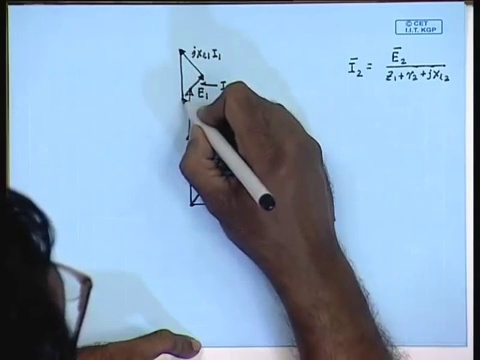 © CET
I.I.T. KGP
jx_{l1} I_1
E_1
I
\bar{I}_2 = \frac{\bar{E}_2}{z_1 + r_2 + jx_{l2}}